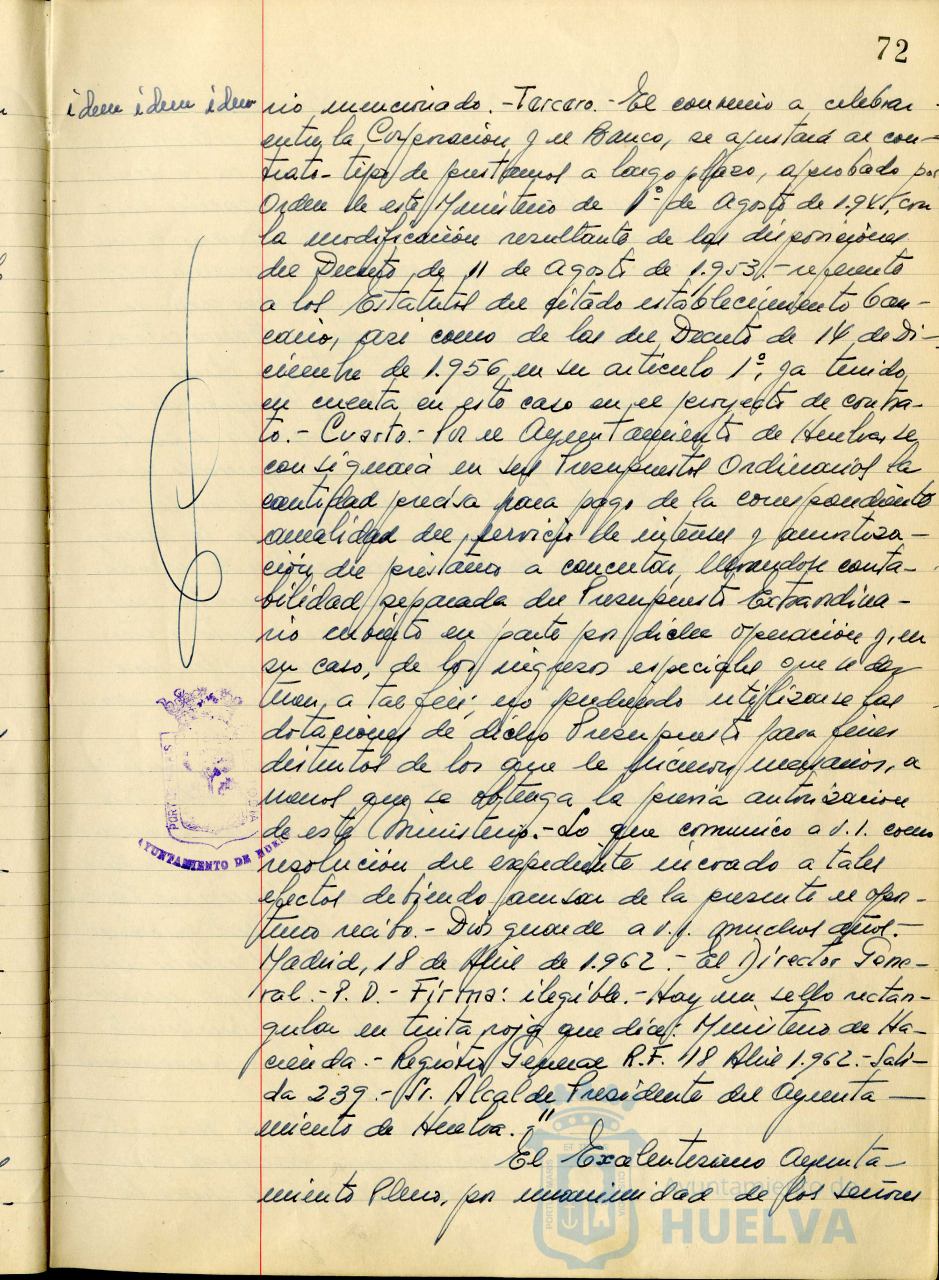 72
idem idem idem
rio mencionado.-Tercero.-El convenio a celebrar
entre la Corporación y el Banco, se ajustará al con-
trato-tipo de prestamos a largo plazo, aprobado por
Orden de este Ministerio de 1º de Agosto de 1.945, con
la modificación resultante de las disposiciones
del Decreto de 11 de Agosto de 1.953.- referente
a los Estatutos del citado establecimiento ban-
cario, asi como de las del Decreto de 14 de Di-
ciembre de 1.956, en su artículo 1º, ya tenido
en cuenta en este caso en el proyecto de contra-
to.- Cuarto.- Por el Ayuntamiento de Huelva, se
consignará en sus Presupuestos Ordinarios la
cantidad precisa para pago de la correspondiente
anualidad del servicio de intereses y amortiza-
ción del préstamo a concertar, llevandose conta-
bilidad separada del Presupuesto Extraordina-
rio cubierto en parte por dicha operación y, en
su caso, de los ingresos especiales que se des
tinen a tal fin; no pudiendo utilizarse las
dotaciones de dicho Presupuesto para fines
distintos de los que le hicieron necesarios, a
menos que se obtenga la previa autorización
de este Ministerio.-Lo que comunico a V.I. como
resolución del expediente incoado a tales
efectos debiendo acusar de la presente el opor-
tuno recibo.- Dios guarde a V.I. muchos años.-
Madrid, 18 de Abril de 1.962.- El Director Gene-
ral.- P. D.- Firma: ilegible.-Hay un sello rectan-
gular en tinta roja que dice: Ministerio de Ha-
cienda.- Registro General R.F. 18 Abril 1.962.-Sali-
da 239.- Sr. Alcalde Presidente del Ayunta-
miento de Huelva."
El Excelentísimo Ayunta-
miento Pleno, por unanimidad de los señores
AYUNTAMIENTO DE HUELVA
Ayuntamiento de
HUELVA